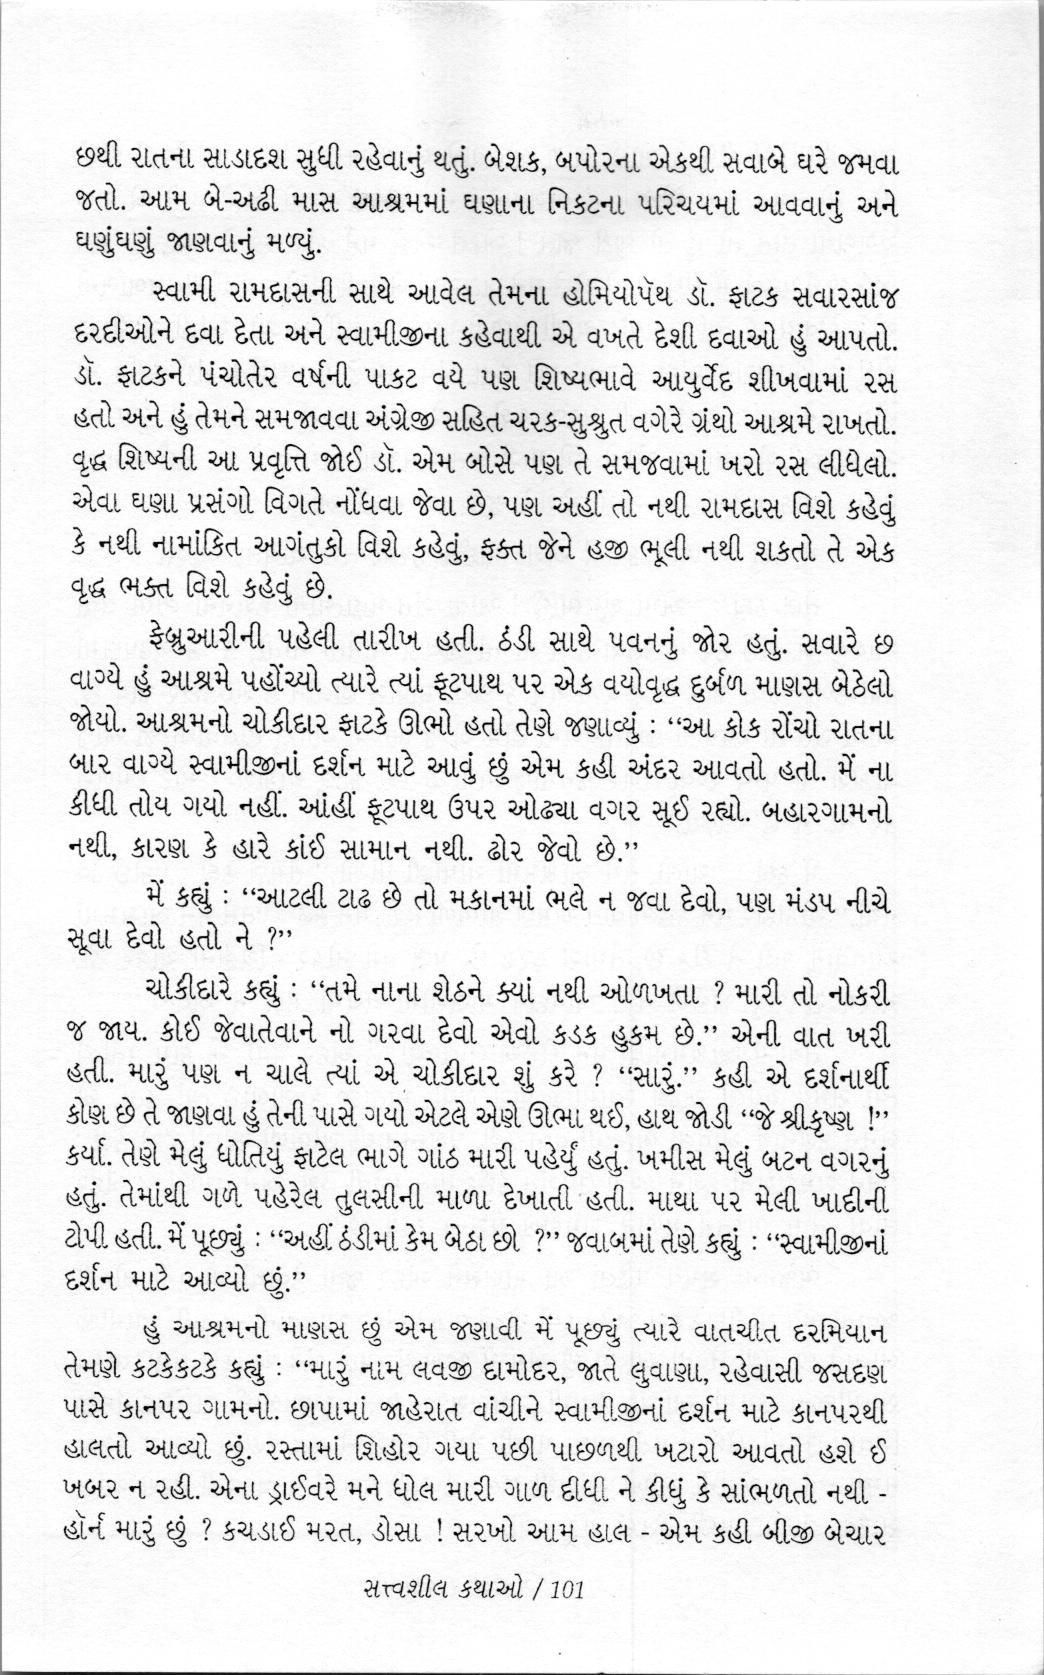 છથી રાતના સાડાદશ સુધી રહેવાનું થતું. બેશક, બપોરના એકથી સવાબે ઘરે જમવા
જતો. આમ બે-અઢી માસ આશ્રમમાં ઘણાના નિકટના પરિચયમાં આવવાનું અને
ઘણુંઘણું જાણવાનું મળ્યું.
સ્વામી રામદાસની સાથે આવેલ તેમના હોમિયોપૅથ ડૉ. ફાટક સવારસાંજ
દરદીઓને દવા દેતા અને સ્વામીજીના કહેવાથી એ વખતે દેશી દવાઓ હું આપતો.
ડૉ. ફાટકને પંચોતેર વર્ષની પાકટ વયે પણ શિષ્યભાવે આયુર્વેદ શીખવામાં રસ
હતો અને હું તેમને સમજાવવા અંગ્રેજી સહિત ચરક-સુશ્રુત વગેરે ગ્રંથો આશ્રમે રાખતો.
વૃદ્ધ શિષ્યની આ પ્રવૃત્તિ જોઈ ડૉ. એમ બોસે પણ તે સમજવામાં ખરો રસ લીધેલો.
એવા ઘણા પ્રસંગો વિગતે નોંધવા જેવા છે, પણ અહીં તો નથી રામદાસ વિશે કહેવું
કે નથી નામાંકિત આગંતુકો વિશે કહેવું, ફક્ત જેને હજી ભૂલી નથી શકતો તે એક
વૃદ્ધ ભક્ત વિશે કહેવું છે.
ફેબ્રુઆરીની પહેલી તારીખ હતી. ઠંડી સાથે પવનનું જોર હતું. સવારે છ
વાગ્યે હું આશ્રમે પહોંચ્યો ત્યારે ત્યાં ફૂટપાથ પર એક વયોવૃદ્ધ દુર્બળ માણસ બેઠેલો
જોયો. આશ્રમનો ચોકીદાર ફાટકે ઊભો હતો તેણે જણાવ્યું : “આ કોક રોંચો રાતના
બાર વાગ્યે સ્વામીજીનાં દર્શન માટે આવું છું એમ કહી અંદર આવતો હતો. મેં ના
કીધી તોય ગયો નહીં. આંહીં ફૂટપાથ ઉપર ઓઢ્યા વગર સૂઈ રહ્યો. બહારગામનો
નથી, કારણ કે હારે કાંઈ સામાન નથી. ઢોર જેવો છે.”
મેં કહ્યું : “આટલી ટાઢ છે તો મકાનમાં ભલે ન જવા દેવો, પણ મંડપ નીચે
સૂવા દેવો હતો ને ?”
ચોકીદારે કહ્યું : “તમે નાના શેઠને ક્યાં નથી ઓળખતા ? મારી તો નોકરી
જ જાય. કોઈ જેવાતેવાને નો ગરવા દેવો એવો કડક હુકમ છે.” એની વાત ખરી
હતી. મારું પણ ન ચાલે ત્યાં એ ચોકીદાર શું કરે ? “સારું.” કહી એ દર્શનાર્થી
કોણ છે તે જાણવા હું તેની પાસે ગયો એટલે એણે ઊભા થઈ, હાથ જોડી “જે શ્રીકૃષ્ણ !”
કર્યા. તેણે મેલું ધોતિયું ફાટેલ ભાગે ગાંઠ મારી પહેર્યું હતું. ખમીસ મેલું બટન વગરનું
હતું. તેમાંથી ગળે પહેરેલ તુલસીની માળા દેખાતી હતી. માથા પર મેલી ખાદીની
ટોપી હતી. મેં પૂછ્યું : “અહીં ઠંડીમાં કેમ બેઠા છો ?” જવાબમાં તેણે કહ્યું : “સ્વામીજીનાં
દર્શન માટે આવ્યો છું.”
હું આશ્રમનો માણસ છું એમ જણાવી મેં પૂછ્યું ત્યારે વાતચીત દરમિયાન
તેમણે કટકેકટકે કહ્યું : “મારું નામ લવજી દામોદર, જાતે લુવાણા, રહેવાસી જસદણ
પાસે કાનપર ગામનો. છાપામાં જાહેરાત વાંચીને સ્વામીજીનાં દર્શન માટે કાનપરથી
હાલતો આવ્યો છું. રસ્તામાં શિહોર ગયા પછી પાછળથી ખટારો આવતો હશે ઈ
ખબર ન રહી. એના ડ્રાઈવરે મને ધોલ મારી ગાળ દીધી ને કીધું કે સાંભળતો નથી -
હૉર્ન મારું છું ? કચડાઈ મરત, ડોસા ! સરખો આમ હાલ - એમ કહી બીજી બેચાર
સત્ત્વશીલ કથાઓ / 101